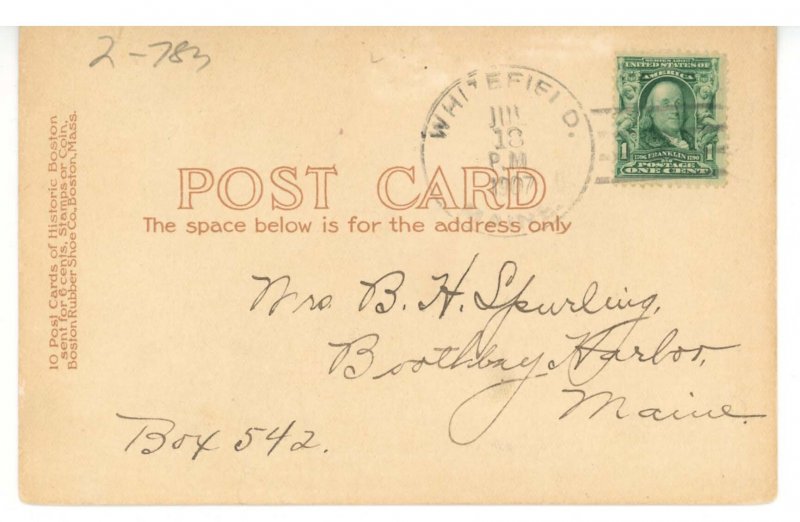 2-783
10 Post Cards of Historic Boston
sent for 6 cents, Stamps or Coin,
Boston Rubber Shoe Co., Boston, Mass.
WHITEFIELD.
JUL
18
P.M.
1907
MAINE
SERIES 1902
UNITED STATES OF
AMERICA
1706 FRANKLIN 1790
1 POSTAGE 1
ONE CENT
POST CARD
The space below is for the address only
Mrs B. H. Spurling,
Boothbay Harbor,
Maine.
Box 542.